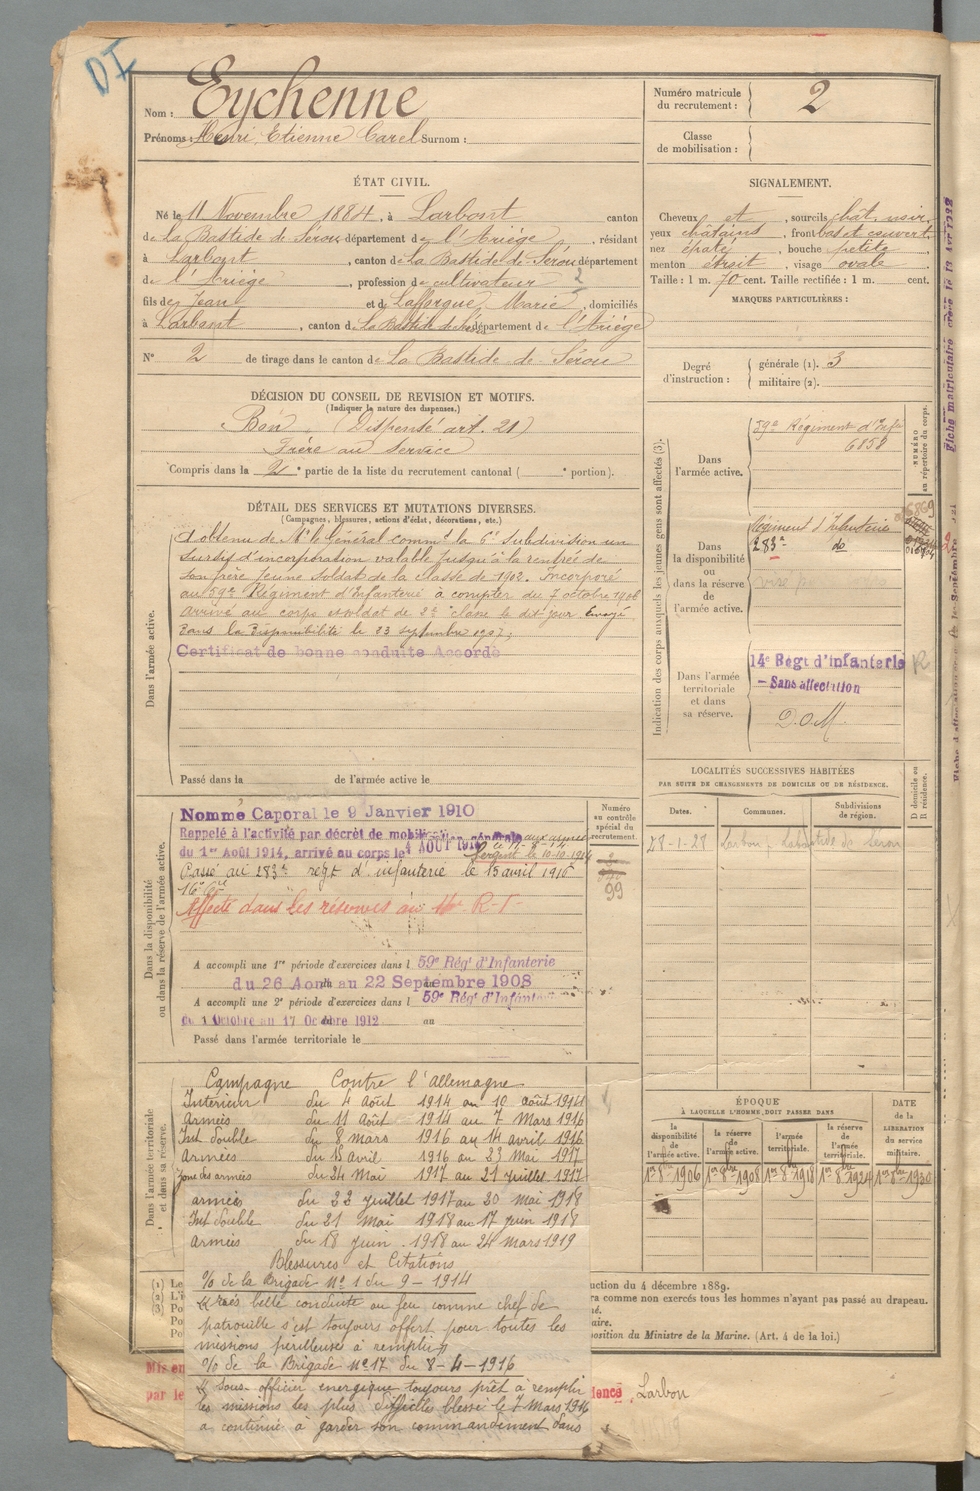 DI
Nom : Eychenne
Prénoms : Henri, Etienne Carel Surnom :
Numéro matricule du recrutement : 2
Classe de mobilisation :
ÉTAT CIVIL.
Né le 11 Novembre 1884, à Larbont canton
de La Bastide de Sérou, département de l'Ariège, résidant
à Larbont, canton de La Bastide de Sérou département
de l'Ariège, profession de cultivateur 2
fils de Jean et de Lafforgue Marie, domiciliés
à Larbont, canton de La Bastide de Sérou département de l'Ariège
N° 2 de tirage dans le canton de La Bastide de Sérou
SIGNALEMENT.
Cheveux et, sourcils chât. noir.
yeux châtains, front bas et couvert
nez épaté, bouche petite
menton étroit, visage ovale
Taille : 1 m. 70 cent. Taille rectifiée : 1 m. cent.
MARQUES PARTICULIÈRES :
Degré d'instruction : générale (1). 3
militaire (2).
DÉCISION DU CONSEIL DE REVISION ET MOTIFS.
(Indiquer la nature des dispenses.)
Bon (Dispensé art. 21)
Frère au Service
Compris dans la 2e partie de la liste du recrutement cantonal ( e portion).
DÉTAIL DES SERVICES ET MUTATIONS DIVERSES.
(Campagnes, blessures, actions d'éclat, décorations, etc.)
Dans l'armée active.
A obtenu de Mr le Général commt la 6e subdivision un
sursis d'incorporation valable jusqu'à la rentrée de
son frère jeune soldat de la classe de 1902. Incorporé
au 59e Régiment d'Infanterie à compter du 7 octobre 1906
arrivé au corps et soldat de 2e classe le dit jour Envoyé
dans la Disponibilité le 23 septembre 1907.
Certificat de bonne conduite Accordé
Passé dans la de l'armée active le
Indication des corps auxquels les jeunes gens sont affectés (3).
NUMÉRO au répertoire du corps.
Dans l'armée active.
59e Régiment d'Infie
6858
Dans la disponibilité ou dans la réserve de l'armée active.
Régiment d'Infanterie
283e do
Dans l'armée territoriale et dans sa réserve.
14e Régt d'infanterie
- Sans affectation
D.O.M.
R
LOCALITÉS SUCCESSIVES HABITÉES
PAR SUITE DE CHANGEMENTS DE DOMICILE OU DE RÉSIDENCE.
Dates. Communes. Subdivisions de région. D domicile ou R résidence.
Dans la disponibilité ou dans la réserve de l'armée active.
Numéro au contrôle spécial du recrutement.
99
Nommé Caporal le 9 Janvier 1910
Rappelé à l'activité par décret de mobilisation générale
du 1er Août 1914, arrivé au corps le 4 AOUT 1914
Sergent le 10-10-1914
Passé au 283e regt d'infanterie le 15 avril 1916
Affecté dans les réserves au R.I.
A accompli une 1re période d'exercices dans l 59e Régt d'Infanterie
du 26 Août au 22 Septembre 1908
A accompli une 2e période d'exercices dans l 59e Régt d'Infanterie
du 1 Octobre au 17 Octobre 1912 au
Passé dans l'armée territoriale le
Dans l'armée territoriale et dans sa réserve.
Campagne Contre l'Allemagne
Intérieur du 4 Août 1914 au 10 août 1914
Armées du 11 Août 1914 au 7 Mars 1916
Int double du 8 mars 1916 au 14 avril 1916
Armées du 15 avril 1916 au 23 Mai 1917
Zone des armées du 24 Mai 1917 au 21 juillet 1917
armées du 22 juillet 1917 au 20 mai 1918
Int double du 21 Mai 1918 au 17 juin 1918
Armées du 18 juin 1918 au 24 mars 1919
Blessures et Citations
% de la Brigade N° 1 du 9 - 1914
"Très belle conduite au feu comme chef de
patrouille s'est toujours offert pour toutes les
missions périlleuses à remplir"
% de la Brigade n° 17 du 8-4-1916
"Sous-officier energique toujours prêt à remplir
les missions les plus difficiles blessé le 7 Mars 1916
a continué à garder son commandement dans
ÉPOQUE
À LAQUELLE L'HOMME DOIT PASSER DANS
la disponibilité de l'armée active. la réserve de l'armée active. l'armée territoriale. la réserve de l'armée territoriale. DATE de la LIBÉRATION du service militaire.
1er 8bre 1906 1er 8bre 1908 1er 8bre 1918 1er 8bre 1924 1er 8bre 1930
(1) Le
(2) L'i
(3) Po
Po
uction du 4 décembre 1889.
ra comme non exercés tous les hommes n'ayant pas passé au drapeau.
é.
aire.
position du Ministre de la Marine. (Art. 4 de la loi.)
Mis en
par le
dence Larbon